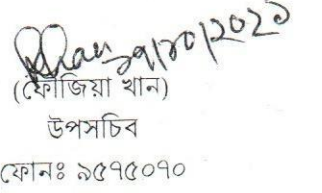 ২৭/১০/২০২১
(ফৌজিয়া খান)
উপসচিব
ফোনঃ ৯৫৭৫০৭০